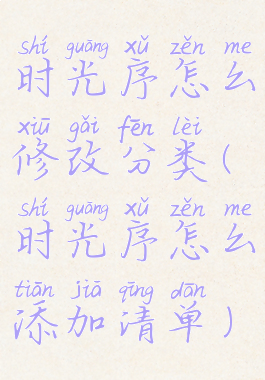 shí guāng xǔ zěn me
时光序怎么
xiū gǎi fēn lèi
修改分类(
shí guāng xǔ zěn me
时光序怎么
tiān jiā qīng dān
添加清单)